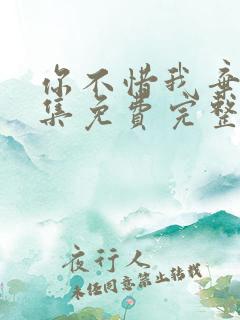 你不惜我棄
集免費完整
夜行人
未经同意禁止转载